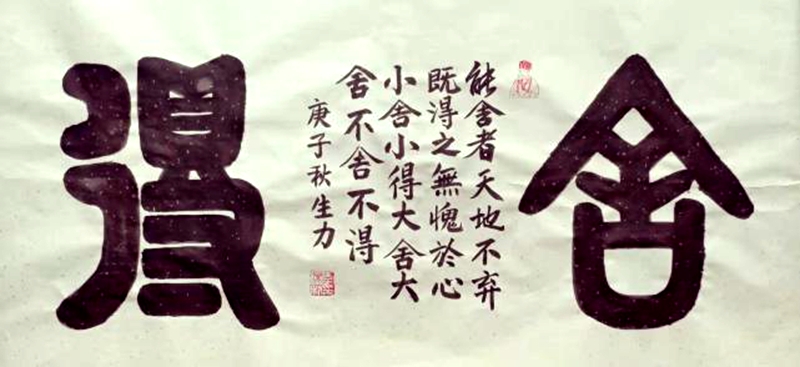 舍
能舍者天地不弃
既得之無愧於心
小舍小得大舍大
舍不舍不得
庚子秋生力
得